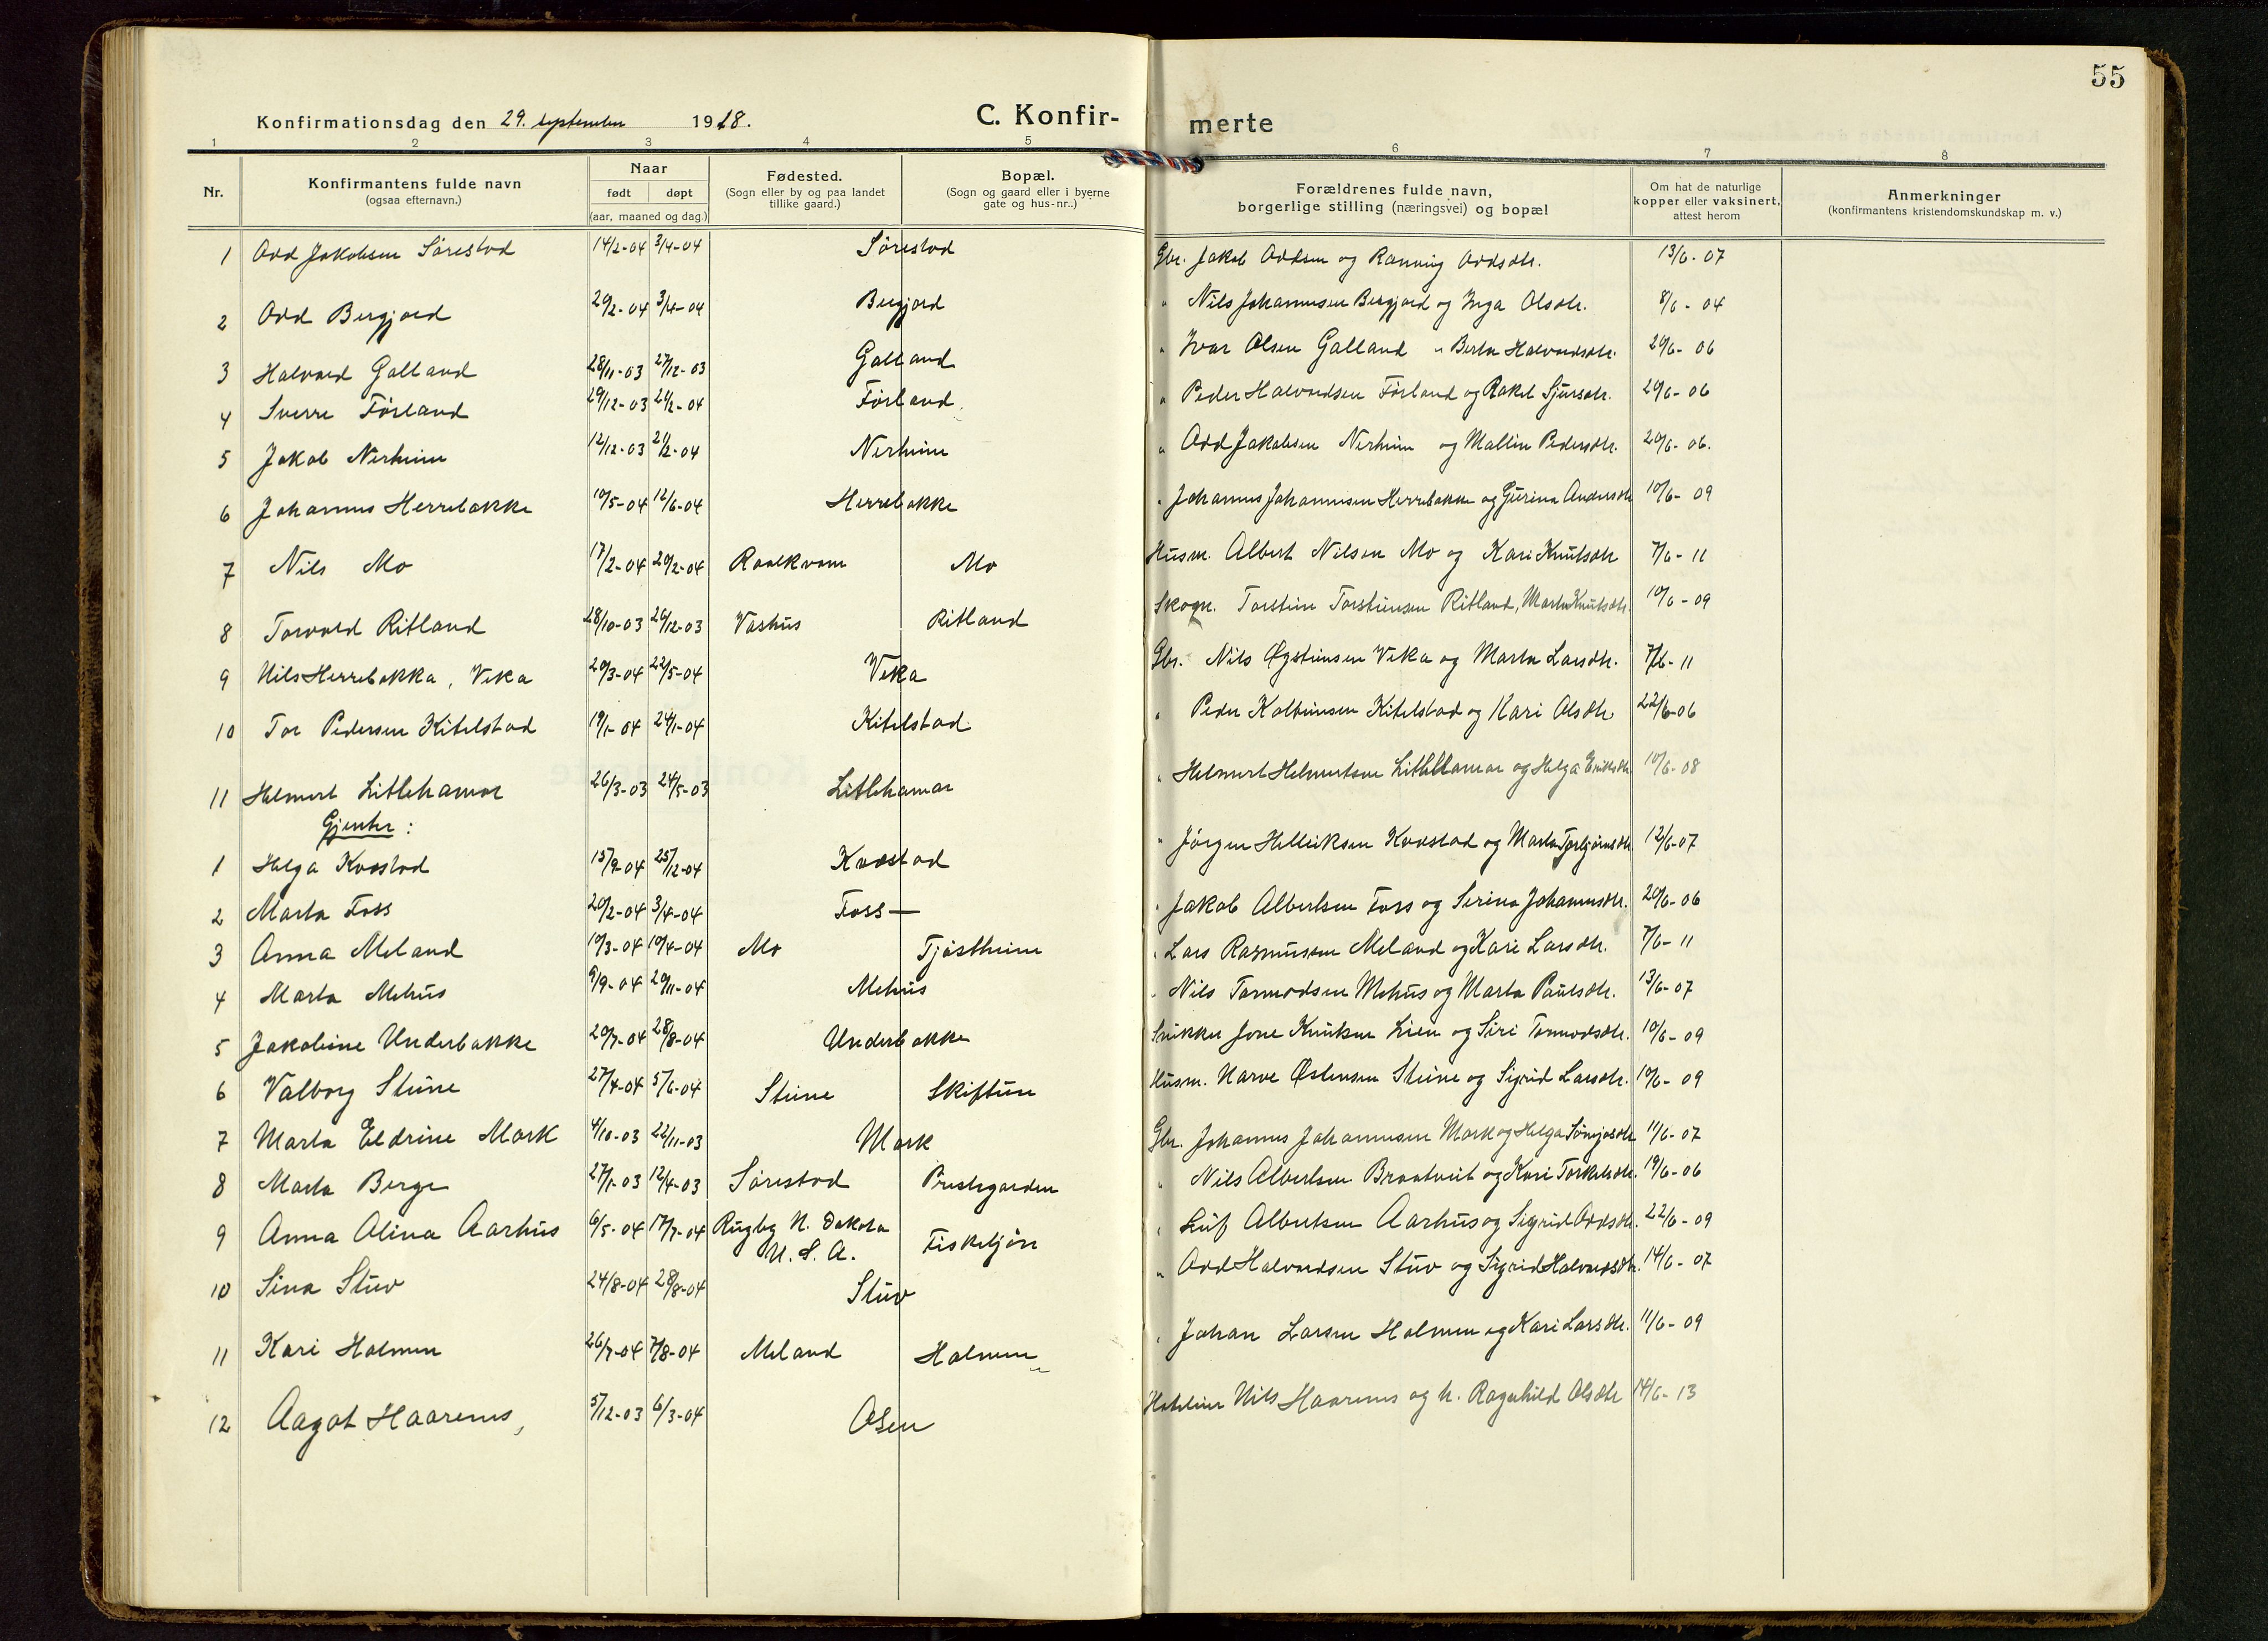 55
Konfirmationsdag den 29. september 1918. C. Konfir- merte
1 2 3 4 5 6 7 8
Nr. Konfirmantens fulde navn (ogsaa efternavn.) Naar født døpt (aar, maaned og dag.) Fødested. (Sogn eller by og paa landet tillike gaard.) Bopæl. (Sogn og gaard eller i byerne gate og hus-nr..) Forældrenes fulde navn, borgerlige stilling (næringsvei) og bopæl Om hat de naturlige kopper eller vaksinert, attest herom Anmerkninger (konfirmantens kristendomskundskap m. v.)
1 Odd Jakobsen Sørestad 14/2-04 3/4-04 Sørestad Gbr. Jakob Oddsen og Ranveig Oddsdtr. 13/6-07
2 Odd Bergjord 29/2-04 3/4-04 Bergjord " Nils Johannesen Bergjord og Inga Olsdtr. 8/6-04
3 Halvard Galland 28/11-03 27/12-03 Galland " Ivar Olsen Galland " Berta Halvardsdtr. 20/6-06
4 Sverre Førland 29/12-03 21/2-04 Førland " Peder Halvardsen Førland og Rakel Sjursdtr. 20/6-06
5 Jakob Nerheim 12/12-03 21/2-04 Nerheim " Odd Jakobsen Nerheim og Mallin Pedersdtr. 20/6-06.
6 Johannes Herrebakke 10/5-04 12/6-04 Herrebakke " Johannes Johannesen Herrebakke og Gurina Andersdtr 10/6-09
7 Nils Mo 17/2-04 20/2-04 Raalkvam Mo Husm. Albert Nilsen Mo og Kari Knutsdtr 7/6-11
8 Torvald Ritland 28/10-03 26/12-03 Vashus Ritland Skogr. Torstein Torsteinsen Ritland, Marta Knutsdtr. 10/6-09
9 Nils Herrebakka, Veka 20/3-04 22/5-04 Veka Gbr. Nils Øysteinsen Veka og Marta Larsdtr. 7/6-11
10 Tor Pedersen Kitelstad 19/1-04 24/1-04 Kitelstad " Peder Kolbeinsen Kitelstad og Kari Olsdtr 22/6-06
11 Helmert Litlehamar 26/3-03 24/5-03 Litlehamar " Helmert Helmertsen Litlehamar og Helga Eriksdtr 10/6-08
Gjenter:
1 Helga Kvæstad 15/9-04 25/12-04 Kvæstad " Jørgen Helleiksen Kvæstad og Marta Torbjørnsdtr 12/6-07
2 Marta Foss 20/2-04 3/4-04 Foss— " Jakob Albertsen Foss og Serina Johannesdtr. 20/6-06
3 Anna Meland 10/3-04 10/4-04 Mo Tjøstheim " Lars Rasmussen Meland og Kari Larsdtr. 7/6-11
4 Marta Mehus 9/9-04 20/11-04 Mehus " Nils Tormodsen Mehus og Marta Paulsdtr. 13/6-07
5 Jakobine Underbakke 20/7-04 28/8-04 Underbakke Snikker Jone Knutsen Lien og Siri Tormodsdtr. 10/6-09
6 Valborg Steine 27/4-04 5/6-04 Steine Skiftun Husm. Narve Østensen Steine og Sigrid Larsdtr. 10/6-09
7 Marta Eldrine Mark 4/10-03 22/11-03 Mark Gbr. Johannes Johannesen Mark og Helga 11/6-07
8 Marta Berge 27/1-03 12/4-03 Sørestad Prestegarden " Nils Albertsen Braatveit og Kari Torkelsdtr. 19/6-06
9 Anna Alina Aarhus 6/5-04 17/7-04 Rugby N. Dakota U. S. A. Fisketjøn " Leif Albertsen Aarhus og Sigrid Oddsdtr. 22/6-09
10 Sina Stuv 24/8-04 28/8-04 Stuv " Odd Halvardsen Stuv og Sigrid Halvardsdtr. 14/6-07
11 Kari Holmen 26/7-04 7/8-04 Meland Holmen " Johan Larsen Holmen og Kari Larsdtr. 11/6-09
12 Aagot Haarens, 5/12-03 6/3-04 Osen Hoteleier Nils Haarens og h. Ragnhild Olsdtr 14/6-13